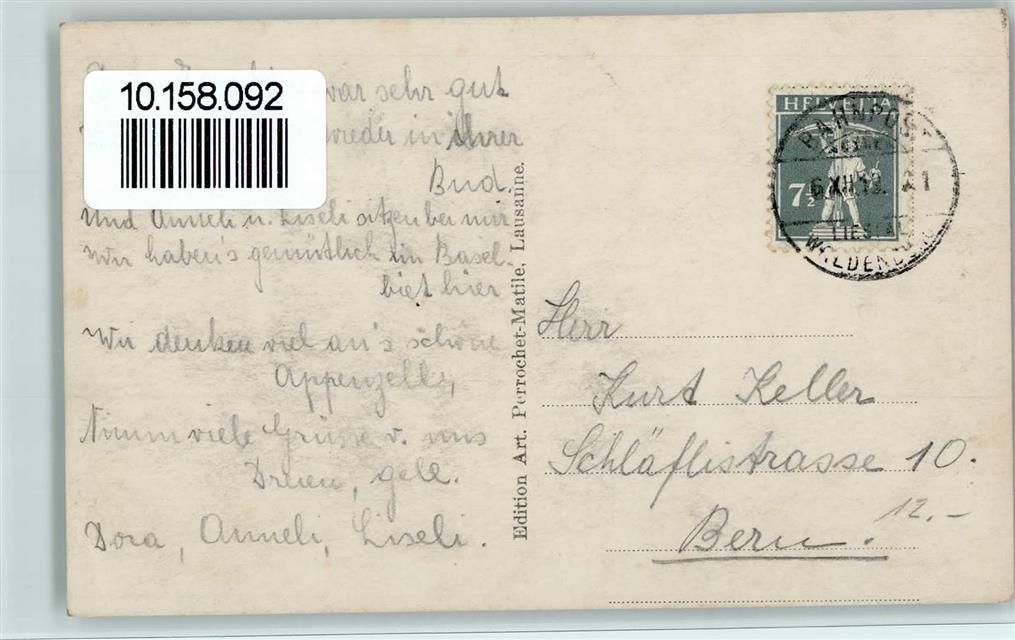 10.158.092
war sehr gut
wieder in ihrer
Bud.
und Anneli u. Liseli sitzen bei mir
wir haben's gemütlich im Basel-
biet hier
Wir denken viel an's schöne
Appenzell,
Nimm viele Grüsse v. uns
Dreien, gell.
Dora, Anneli, Liseli.
Edition Art. Perrochet-Matile, Lausanne.
HELVETIA
7½
BAHNPOST
6 XII 19. 21
WALDENBURG
Herr
Kurt Keller
Schläflistrasse 10.
Bern.
12.-